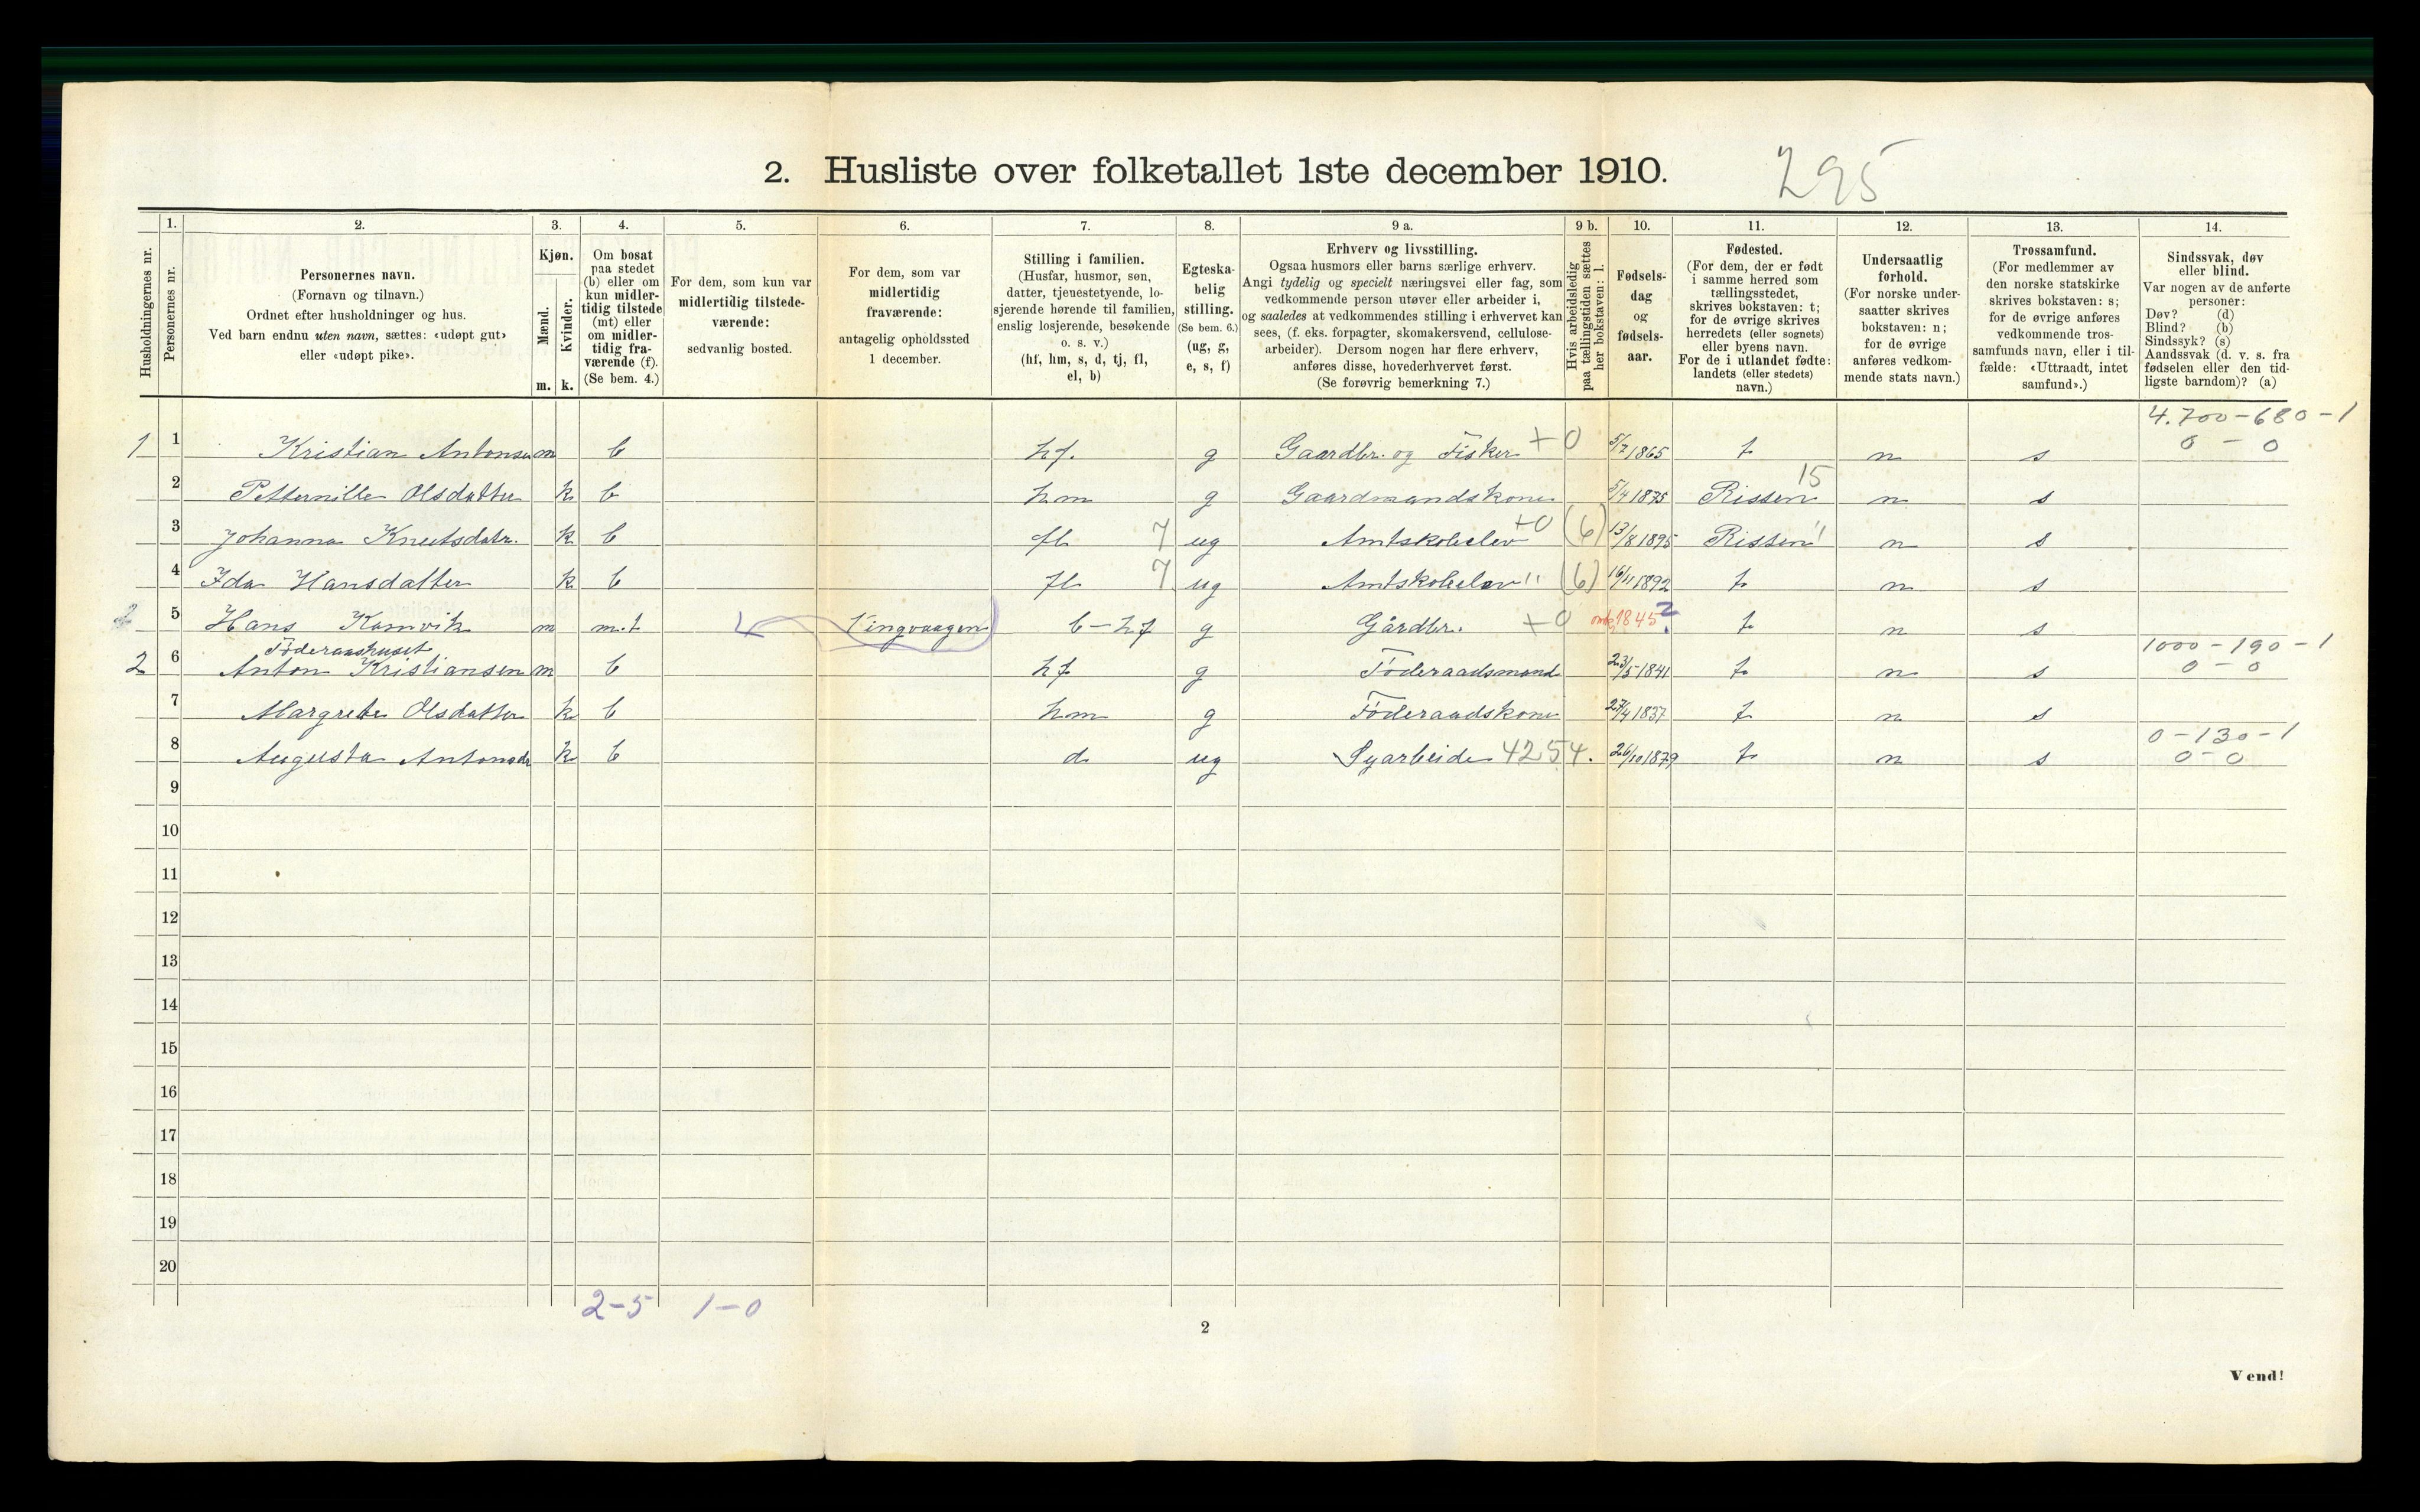 2. Husliste over folketallet 1ste december 1910.
295
1. 2. 3. 4. 5. 6. 7. 8. 9 a. 9 b. 10. 11. 12. 13. 14.
Husholdningernes nr.
Personernes nr.
Personernes navn.
(Fornavn og tilnavn.)
Ordnet efter husholdninger og hus.
Ved barn endnu uten navn, sættes: «udøpt gut»
eller «udøpt pike».
Kjøn.
Mænd.
Kvinder.
m. k.
Om bosat
paa stedet
(b) eller om
kun midler-
tidig tilstede
(mt) eller
om midler-
tidig fra-
værende (f).
(Se bem. 4.)
For dem, som kun var
midlertidig tilstede-
værende:
sedvanlig bosted.
For dem, som var
midlertidig
fraværende:
antagelig opholdssted
1 december.
Stilling i familien.
(Husfar, husmor, søn,
datter, tjenestetyende, lo-
sjerende hørende til familien,
enslig losjerende, besøkende
o. s. v.)
(hf, hm, s, d, tj, fl,
el, b)
Egteska-
belig
stilling.
(Se bem. 6.)
(ug, g,
e, s, f)
Erhverv og livsstilling.
Ogsaa husmors eller barns særlige erhverv.
Angi tydelig og specielt næringsvei eller fag, som
vedkommende person utøver eller arbeider i,
og saaledes at vedkommendes stilling i erhvervet kan
sees, (f. eks. forpagter, skomakersvend, cellulose-
arbeider). Dersom nogen har flere erhverv,
anføres disse, hovederhvervet først.
(Se forøvrig bemerkning 7.)
Hvis arbeidsledig
paa tællingstiden sættes
her bokstaven: l.
Fødsels-
dag
og
fødsels-
aar.
Fødested.
(For dem, der er født
i samme herred som
tællingsstedet,
skrives bokstaven: t;
for de øvrige skrives
herredets (eller sognets)
eller byens navn.
For de i utlandet fødte:
landets (eller stedets)
navn.)
Undersaatlig
forhold.
(For norske under-
saatter skrives
bokstaven: n;
for de øvrige
anføres vedkom-
mende stats navn.)
Trossamfund.
(For medlemmer av
den norske statskirke
skrives bokstaven: s;
for de øvrige anføres
vedkommende tros-
samfunds navn, eller i til-
fælde: «Uttraadt, intet
samfund».)
Sindssvak, døv
eller blind.
Var nogen av de anførte
personer:
Døv? (d)
Blind? (b)
Sindssyk? (s)
Aandssvak (d. v. s. fra
fødselen eller den tid-
ligste barndom)? (a)
4.700-680-1
1 1 Kristian Antonsen m b hf. g Gaardbr. og Fisker +0 5/7 1865 t n s 0-0
15
2 Petternille Olsdatter k b hm g Gaardmandskone 5/4 1875 Rissen n s
3 Johanna Knutsdatr. k b fl 7 ug Amtskoleelev +0 (6) 13/8 1895 Rissen " n s
4 Ida Hansdatter k b fl 7 ug Amtskoleelev " (6) 16/11 1892 t n s
2 5 Hans Kamvik m m.t Vingvaagen b-hf g Gårdbr. +0 omkr 1845 ? t n s
Föderaashuset 1000-190-1
2 6 Anton Kristiansen m b hf g Föderaadsmand 23/5 1841 t n s 0-0
7 Margrete Olsdatter k b hm g Föderaadskone 27/4 1837 t n s
0-130-1
8 Augusta Antonsdr k b d ug Syarbeide 4254. 26/10 1879 t n s 0-0
9
10
11
12
13
14
15
16
17
18
19
20
2-5 1-0
2
Vend!